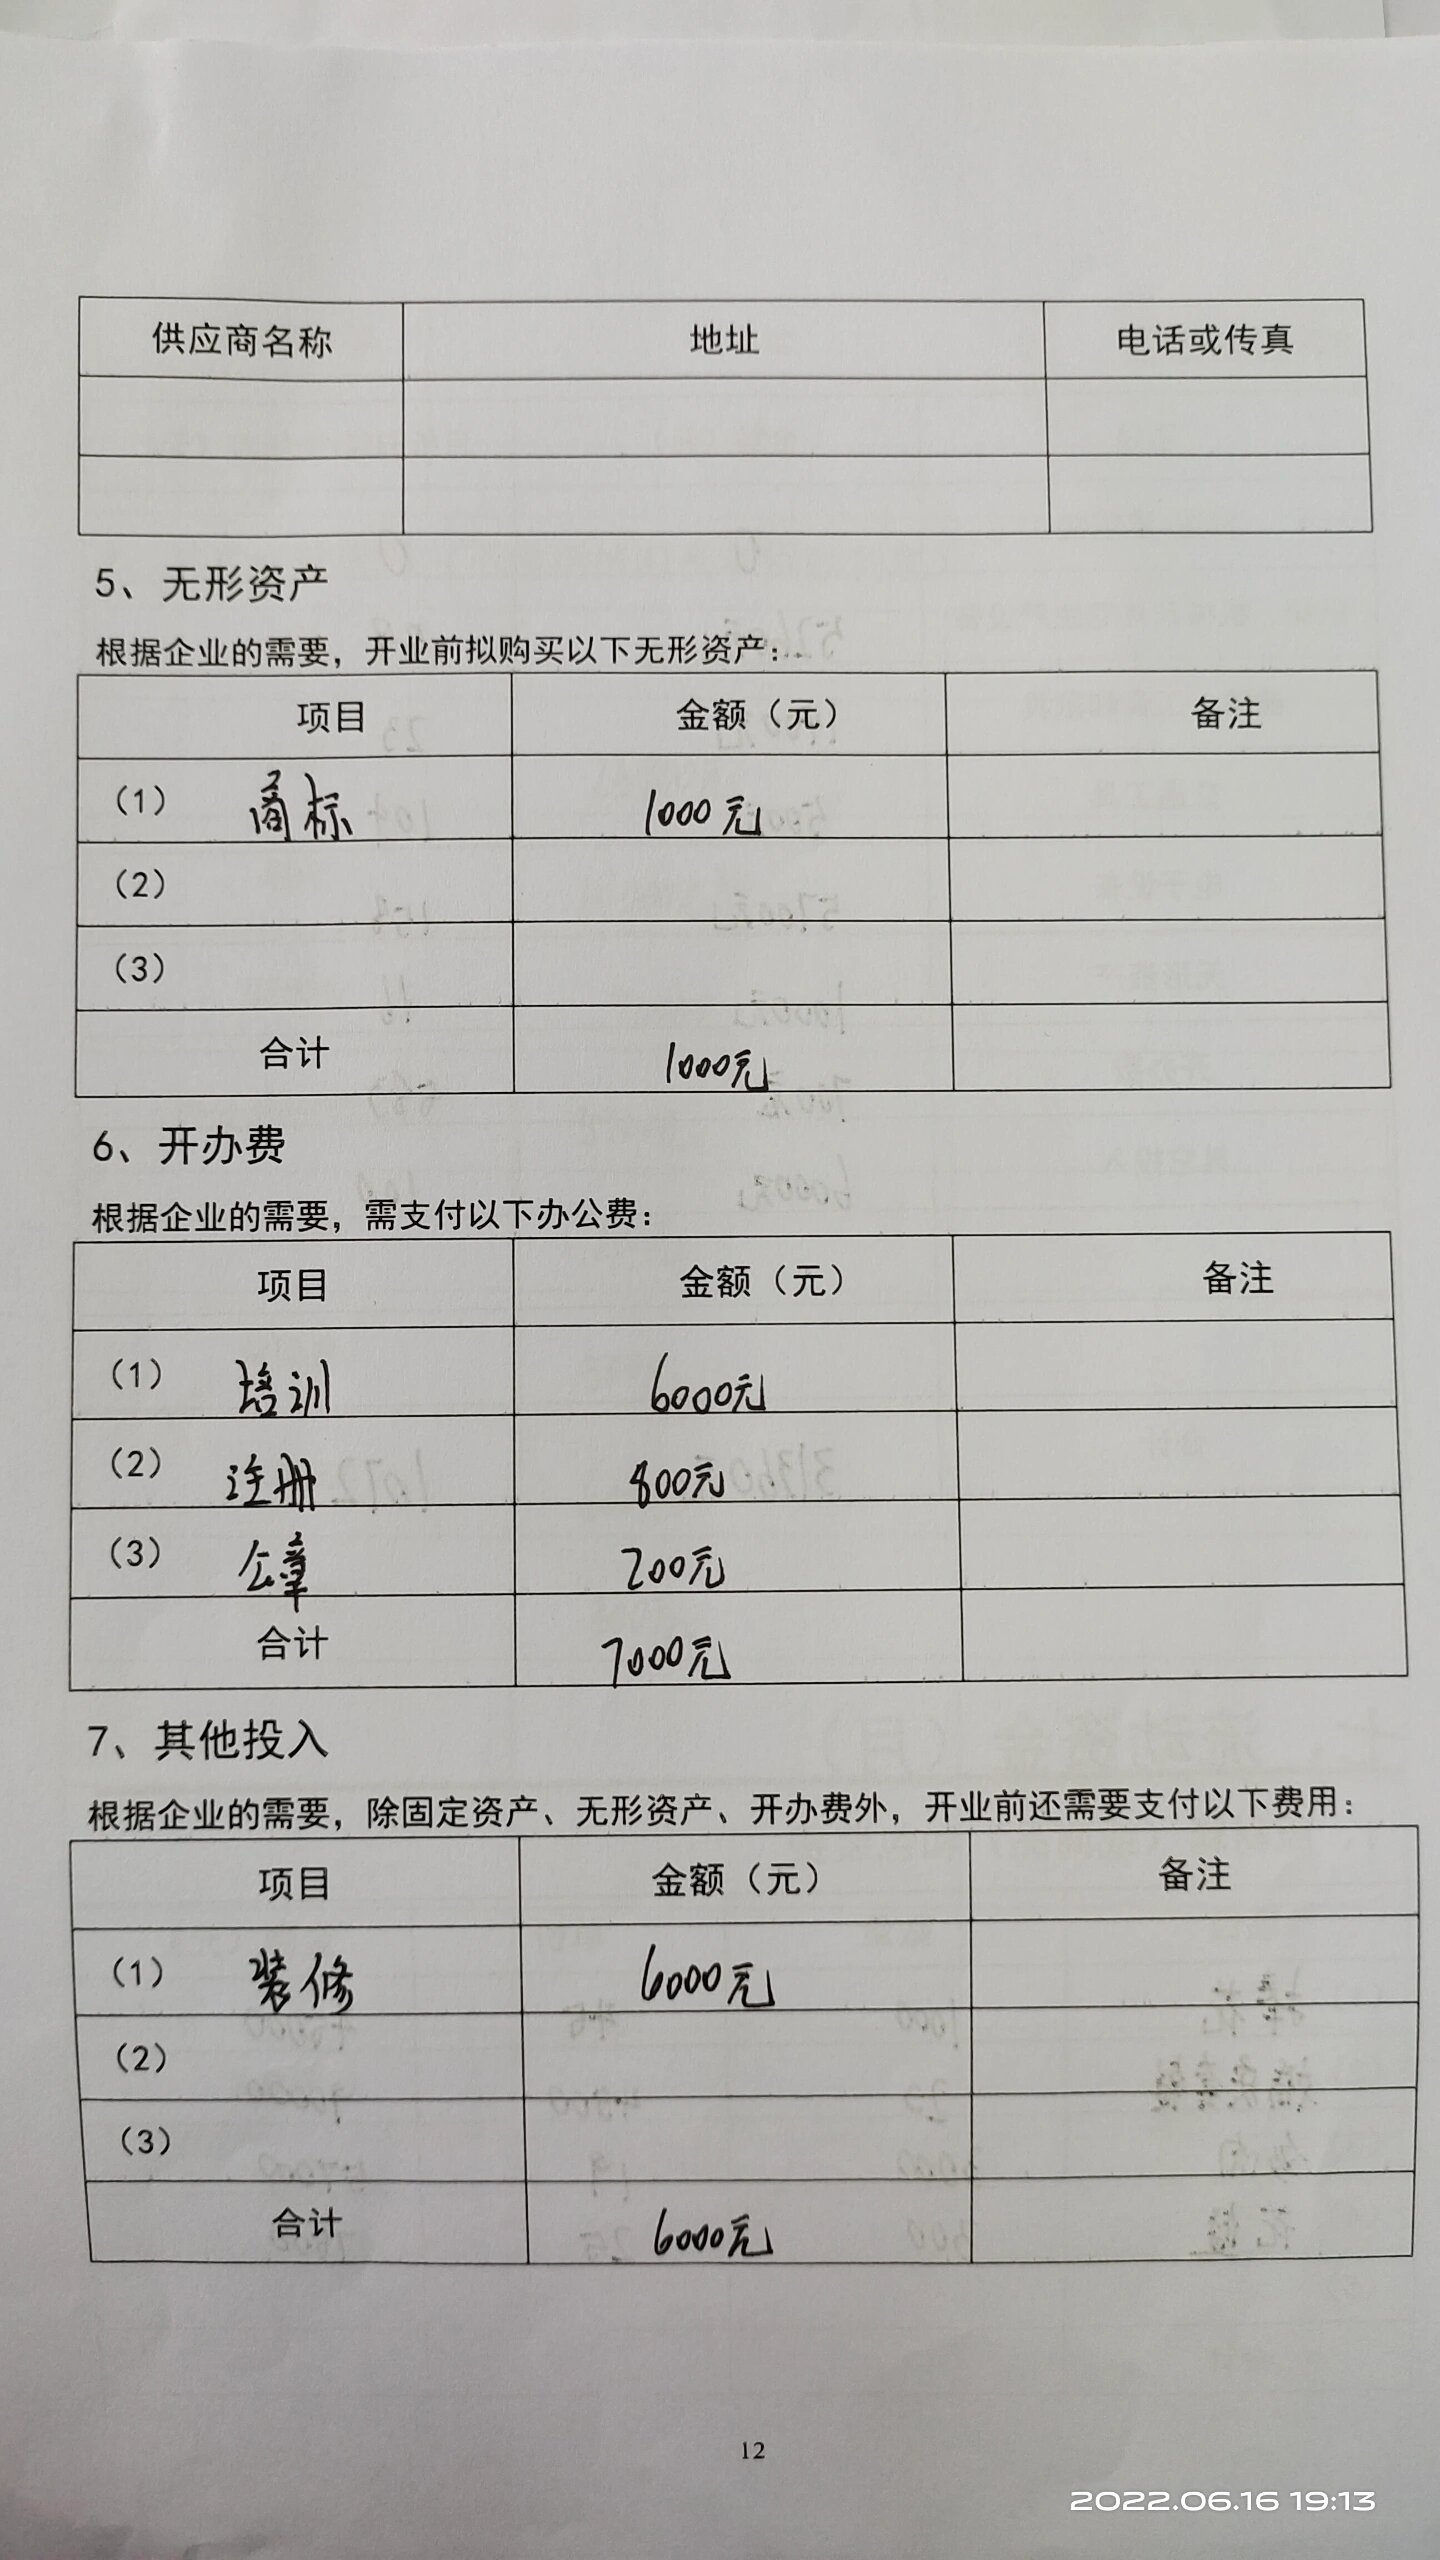 供应商名称 地址 电话或传真
5、无形资产
根据企业的需要，开业前拟购买以下无形资产：
项目 金额（元） 备注
（1） 商标 1000元
（2）
（3）
合计 1000元
6、开办费
根据企业的需要，需支付以下办公费：
项目 金额（元） 备注
（1） 培训 6000元
（2） 注册 800元
（3） 公章 200元
合计 7000元
7、其他投入
根据企业的需要，除固定资产、无形资产、开办费外，开业前还需要支付以下费用：
项目 金额（元） 备注
（1） 装修 6000元
（2）
（3）
合计 6000元
12
2022.06.16 19:13